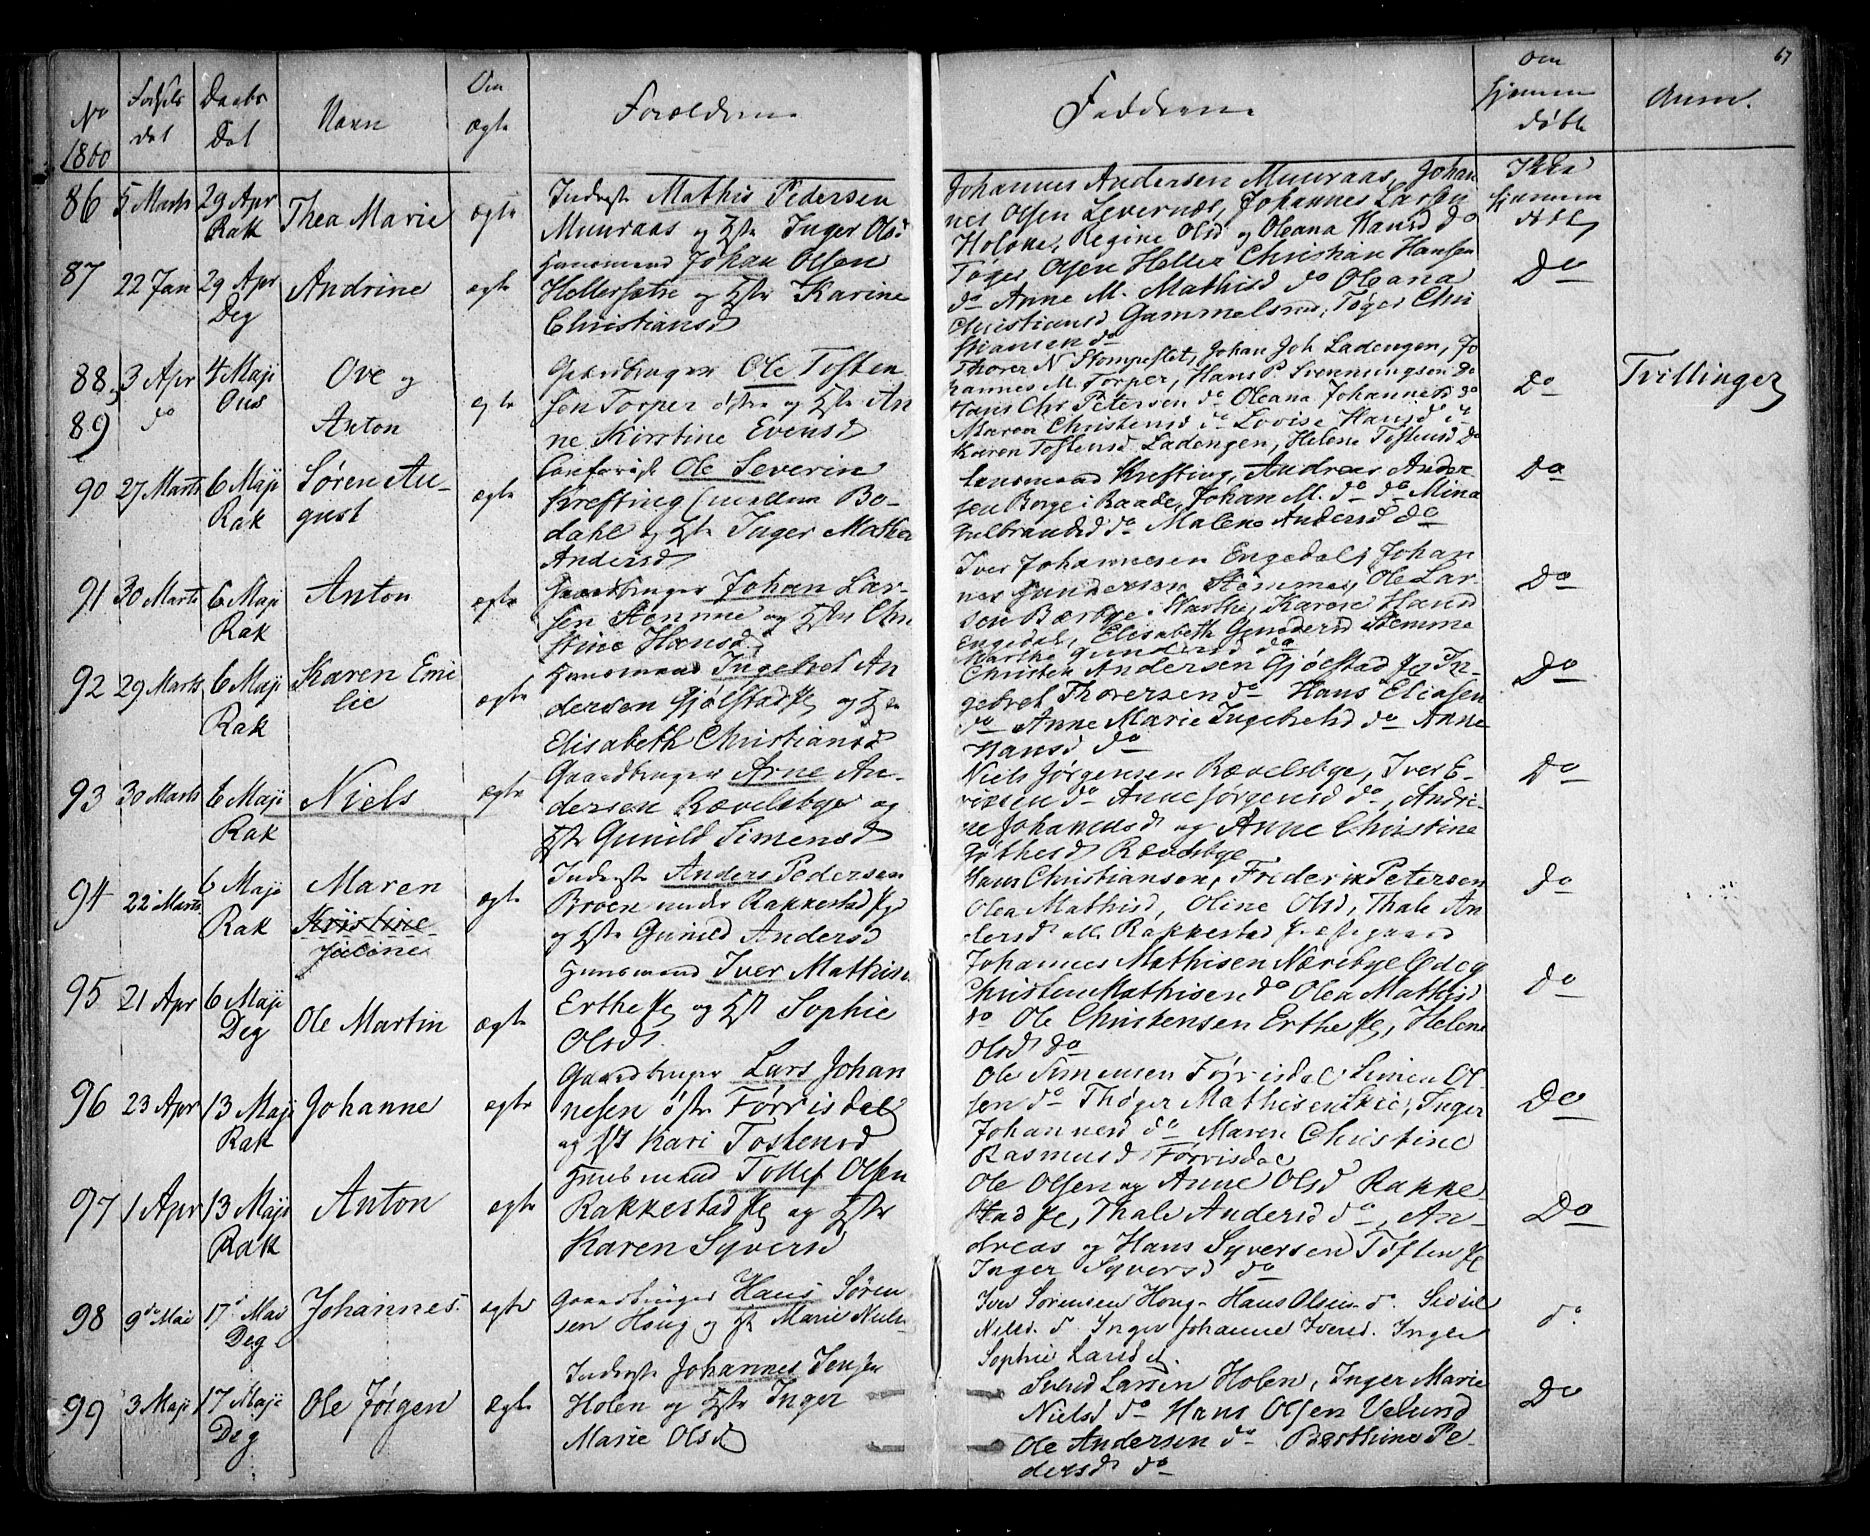 67
No 1860 Fødsels dat Daabs Dat Navn Om ægte Forældrene Fadderne Om hjemme døbt Anm.
86 5 Marts 29 Apr Rak Thea Marie ægte
Inderste Mathis Pedersen
Muuraas og Hstr Inger Olsd
Johannes Andersen Muuraas, Johan
nes Olsen Levernæs, Johannes Larsen
Holøne, Regine Olsd og Oleana Hansd do
Ikke
hjemme
døbt
87 22 Jan 29 Apr Deg Andrine ægte
Huusmand Johan Olsen
Hellersætre og Hstr Karine
Christiansd
Tøger Olsen Heller Christian Hansen
do Anne M. Mathisd do Oleana
Christiansd Gammelsrud, Tøger Chri
stiansen do
Do
88, 3 Apr 4 Maji Ove og
89 do Anton ægte
Gaardbruger Ole Tosten
sen Torper østre og Hstr An
ne Kirstine Evensd
Thorer N Stompestet, Johan Joh Ladengen, Jo
hannes M. Torper, Hans P. Svenningsen do
Hans Chr Petersen do Oleana Johannesd do
Maren Christensd do Lovise Hansd do
Karen Tostensd Ladengen, Helene Tostensd do
Do
Tvillinger
90 27 Marts 6 Maji Rak Søren Au-
gust ægte
Ole Severin
Krefting (mellem Bo-
dahl og Hstr Inger Mathea
Andersd
Lensmand Krefting, Andreas Ander
sen Borge i Raade, Johan M. do do Mina
Gulbrandsd do Malene Andersd do
Do
91 30 Marts 6 Maji Rak Anton ægte
Gaardbruger Johan Lar-
sen Stemme og Hstr Chri
stine Hansd
Iver Johannesen Engedal, Johan
nes Gundersen Stemme, Ole Lar
sen Bærbye, Marthe, Karine Hansd
Engedal, Elisabeth Gundersd Stemme
Marthe Gundersd do
Do
92 29 Marts 6 Maji Rak Karen Emi
lie ægte
Huusmand Ingebret An
dersen Gjølstad Ie og Hstr
Elisabeth Christiansd
Christen Andersen Gjølstad Ie In-
gebret Thorersen do Hans Eliasen
do Anne Marie Ingebretsd do Anne
Hansd do
Do
93 30 Marts 6 Maji Rak Niels ægte
Gaardbruger Arne An-
dersen Rævelsbye og
Hstr Gunild Simensd
Niels Jørgensen Rævelsbye, Iver E-
riksen do Anne Jørgensd do, Andri-
ne Johannesd og Anne Christine
Gøthesd Rævelsbye
Do
94 22 Marts 6 Maji Rak Maren
Kristine
Juline ægte
Inderste Anders Pedersen
Broen under Rakkestad Pgd
og Hstr Gunild Andersd
Hans Christiansen, Friderik Petersen
Olea Mathisd, Oline Olsd, Thale An
dersd alle Rakkestad Præstegaard
Do
95 21 Apr 6 Maji Deg Ole Martin ægte
Huusmand Iver Mathise
Erthe Ie og Hst Sophie
Olsd
Johannes Mathisen Nærebye Ødeg
Christen Mathisen do Olea Mathisd
do Ole Christensen Erthe Ie, Helene
Olsd do
Do
96 23 Apr 13 Maji Rak Johanne ægte
Gaardbruger Lars Johan
nesen østre Førrisdal
og Hst Kari Tostensd
Ole Simensen Førrisdal Simen Ol
sen do Thøger Mathisen Skie, Inger
Johannesd do Maren Christine
Rasmusd Førrisdal
Do
97 1 Apr 13 Maji Rak Anton ægte
Huusmand Tollef Olsen
Rakkestad Ie og Hstr
Karen Syversd
Ole Olsen og Anne Olsd Rakke-
stad Ie, Thale Andersd do, An-
dreas og Hans Syversen Tøften Ie
Inger Syversd do
Do
98 9de Mai 17de Mai Deg Johannes ægte
Gaardbruger Hans Søren
sen Houg og Hst Marie Niels
Iver Sørensen Houg- Hans Olsen do. Sidsel
Nielsd. d. Inger Johanne Iversd. Inger
Sophie Larsd d.
do
99 3 Maji 17 Maji Deg Ole Jørgen ægte
Inderste Johannes Jensen
Holen og Hstr Inger
Marie Olsd
Svend Larsen Holen, Inger Marie
Nielsd do Hans Olsen Velund
Ole Andersen do Berthine Pe-
dersd do
Do